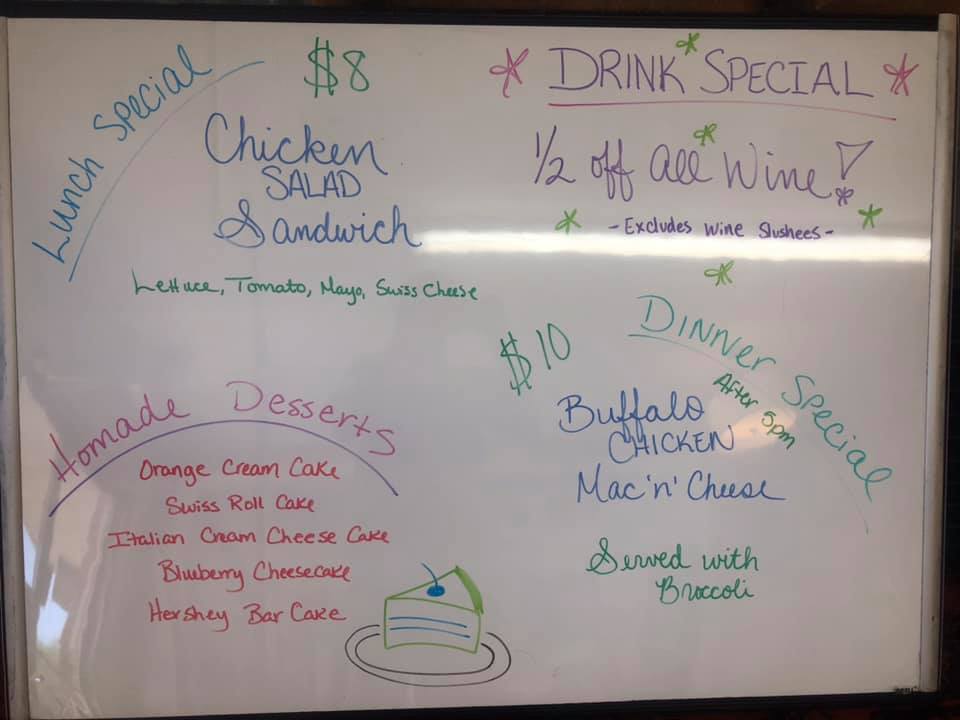 Lunch Special
$8
Chicken
SALAD
Sandwich
Lettuce, Tomato, Mayo, Swiss Cheese
DRINK SPECIAL
1/2 off All Wine!
- Excludes Wine Slushees -
Homade Desserts
Orange Cream Cake
Swiss Roll Cake
Italian Cream Cheese Cake
Blueberry Cheesecake
Hershey Bar Cake
Dinner Special
After 5pm
$10
Buffalo
CHICKEN
Mac 'n' Cheese
Served with
Broccoli